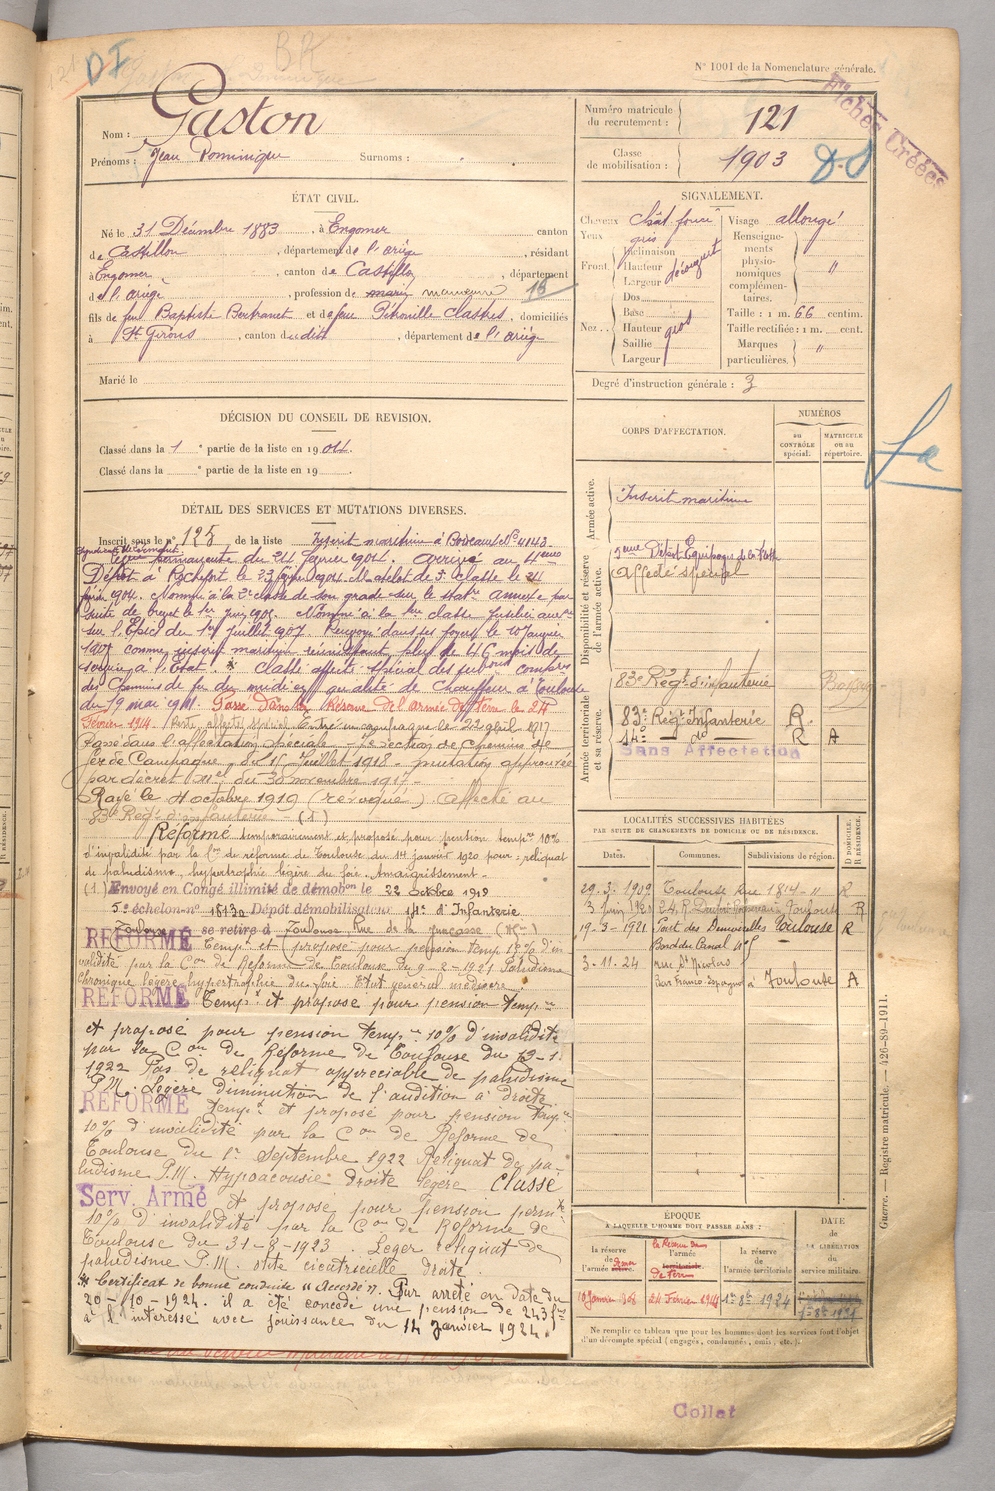 BR
DF
N° 1001 de la Nomenclature générale.
Fiches Créées
Nom : Gaston
Prénoms : Jean Dominique Surnoms :
Numéro matricule du recrutement : 121
Classe de mobilisation : 1903
ÉTAT CIVIL.
Né le 31 Décembre 1883, à Engomer canton
de Castillon, département de l'Ariège, résidant
à Engomer, canton de Castillon, département
de l'Ariège, profession de marin manœuvre 18
fils de feu Baptiste Bertranet et de feue Pétronille Clastres, domiciliés
à St Girons, canton dudit, département de l'Ariège
Marié le
SIGNALEMENT.
Cheveux chât foncé Visage allongé
Yeux gris
Front Inclinaison Hauteur Largeur découvert
Nez Dos Base Hauteur Saillie Largeur gros
Renseignements physionomiques complémentaires. "
Taille : 1 m. 66 centim.
Taille rectifiée : 1 m. cent.
Marques particulières. "
Degré d'instruction générale : 3
DÉCISION DU CONSEIL DE REVISION.
Classé dans la 1e partie de la liste en 1904.
Classé dans la e partie de la liste en 19
DÉTAIL DES SERVICES ET MUTATIONS DIVERSES.
Inscrit sous le n° 125 de la liste Inscrit maritime à Bordeaux N° 4143
permanente du 24 février 1904. Arrivé au 4ème
Dépôt à Rochefort le 23 février 1904. Matelot de 3e classe le 24
février 1904. Nommé à la 2e classe de son grade
suite de brevet le 1er juin 1905. Nommé à la 1re classe fusilier
sur l'Epée du 1er juillet 1907 Renvoyé dans ses foyers le 10 Janvier
1907 comme inscrit maritime réunissant plus de 46 mois de
service à l'Etat. Classé affecté spécial des
des Chemins de fer du midi en qualité de Chauffeur à Toulouse
du 19 mai 1911. Passé dans la Réserve de l'armée de terre le 24
Février 1914. affecté spécial Entré en campagne le 22 avril 1917
Passé dans l'affectation spéciale - section de Chemins de
fer de Campagne, du 11 Juillet 1918 - mutation approuvée
par décret du 30 novembre 1917 -
Rayé le 4 octobre 1919 (révoqué) affecté au
83e Régt d'infanterie - (1)
Réformé temporairement et proposé pour pention tempre 10%
d'invalidité par la Con de réforme de Toulouse du 14 janvier 1920 pour : reliquat
de paludisme, hypertrophie légère du foie. Amaigrissement -
(1) Envoyé en Congé illimité de démobon le 22 octobre 1919
5e échelon n° 18132 Dépôt démobilisateur 14e d'Infanterie
Toulouse se retire à Toulouse, Rue de la (Hte)
REFORMÉ Tempt et proposé pour pension temp. 10% d'in
validité par la Con de Reforme de Toulouse du 9-2-1921 Paludisme
Chronique légère hypertrophie du foie. Etat général médiocre.
REFORMÉ Tempt et proposé pour pension tempre
et proposé pour pension tempre 10% d'invalidité
par la Con de Réforme de Toulouse du 13-1
1922 Pas de reliquat appréciable de paludisme
P.M. Légère diminution de l'audition à droite
REFORMÉ tempt et proposé pour pension tempre
10% d'invalidité par la Con de Réforme de
Toulouse du 1er Septembre 1922 Reliquat de pa-
ludisme P.M. Hypoacousie droite légère. Classé
Serv. Armé et proposé pour pension permte
10% d'invalidité par la Con de Réforme de
Toulouse du 31-8-1923. Léger reliquat de
paludisme P.M. otite cicatricielle droite.
Certificat de bonne conduite "Accordé". Par arrêté en date du
20-10-1924. il a été concédé une pension de 243 frs
à l'intéressé avec jouissance du 14 Janvier 1924.
CORPS D'AFFECTATION.
NUMÉROS
DU CONTRÔLE spécial.
MATRICULE ou au répertoire.
Armée active.
Inscrit maritime
Disponibilité et réserve de l'armée active.
5ème Dépôt Equipages de la Flotte
Affecté spécial
83e Régt d'infanterie
Armée territoriale et sa réserve.
83e Régt Infanterie R
14e do R A
Sans Affectation
LOCALITÉS SUCCESSIVES HABITÉES
PAR SUITE DE CHANGEMENTS DE DOMICILE OU DE RÉSIDENCE.
Dates. Communes. Subdivisions de région. D DOMICILE. R RÉSIDENCE.
29.3.1909 Toulouse Rue 1814 - " R
3 juin 1920 Toulouse R
19-3-1921 Port des Demoiselles Toulouse R
Bord du Canal
3-11-24 à Toulouse A
ÉPOQUE
À LAQUELLE L'HOMME DOIT PASSER DANS :
la réserve de l'armée active.
la Réserve de l'armée territoriale. de terre
la réserve de l'armée territoriale
DATE DE LA LIBÉRATION du service militaire.
10 Janvier 1908 24 Février 1914 1er 8bre 1924
Ne remplir ce tableau que pour les hommes dont les services font l'objet
d'un décompte spécial (engagés, condamnés, omis, etc.).
Guerre. — Registre matricule. — 426-89-1911.
Collat